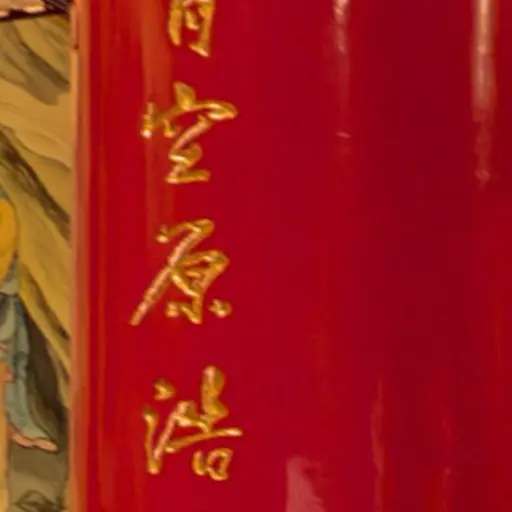 空原浩